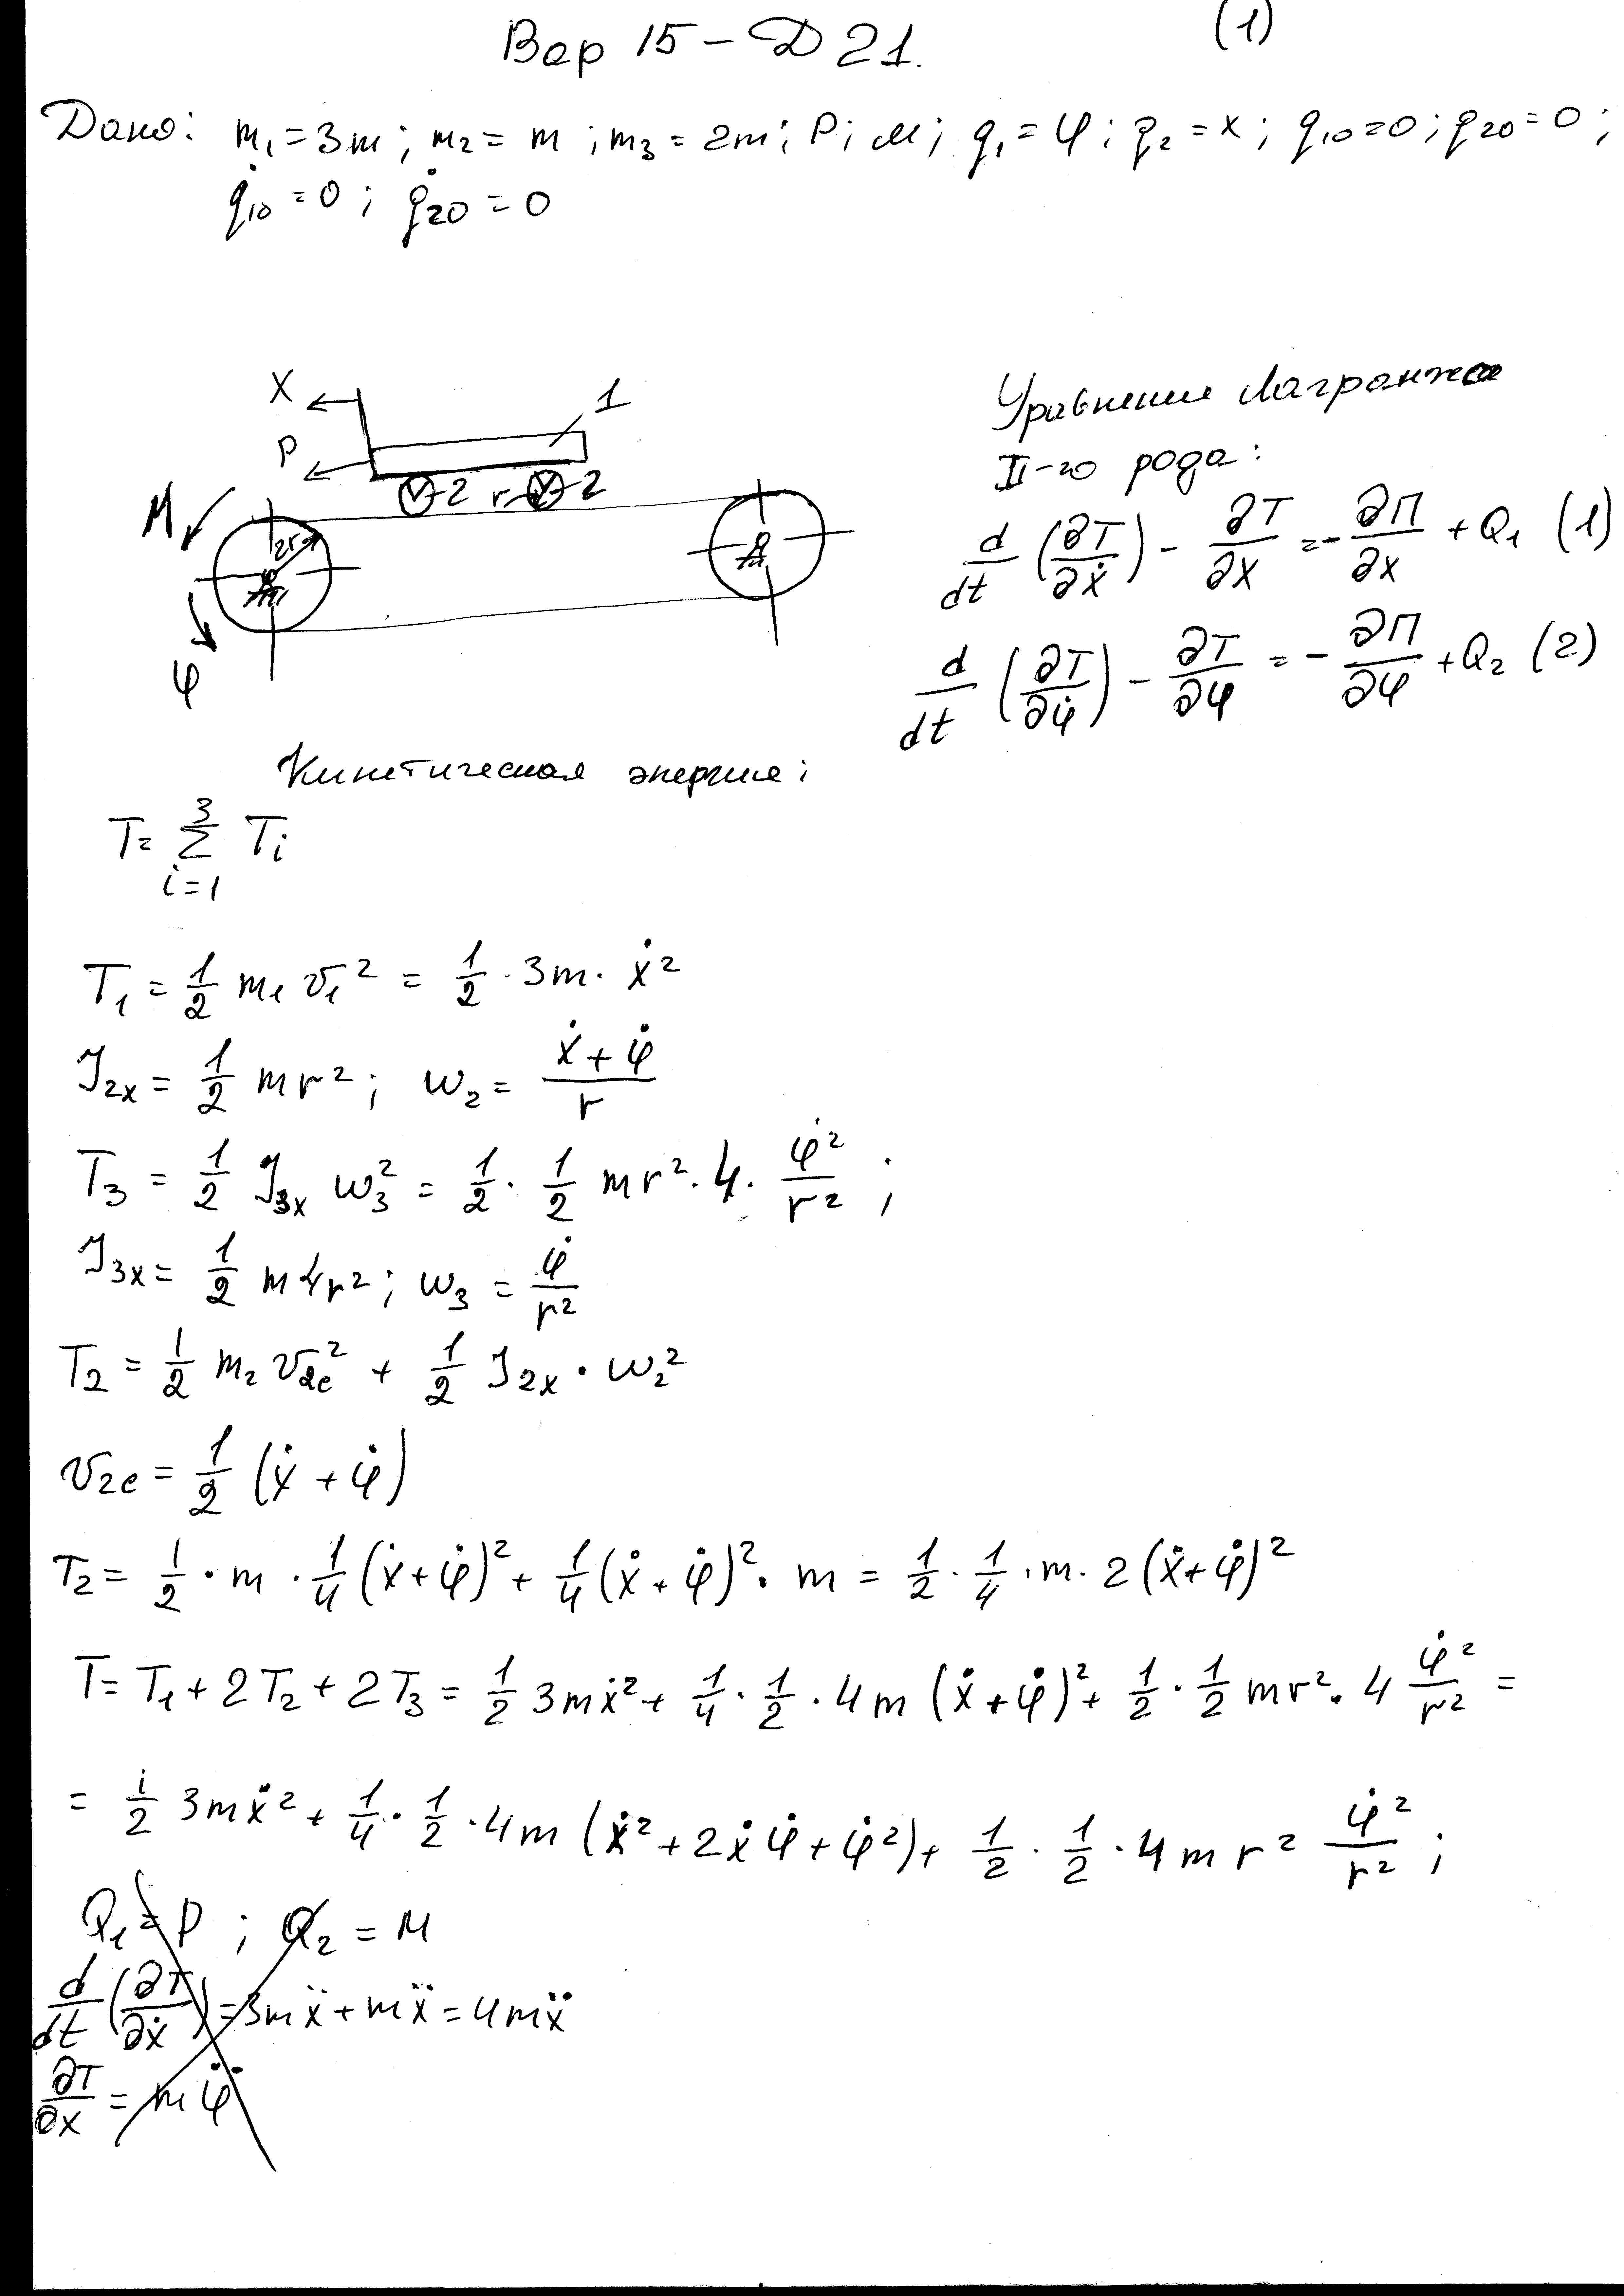 Вар 15 – Д 21.
(1)
Дано: m₁ = 3m; m₂ = m; m₃ = 2m; P; M; q₁ = φ; q₂ = x; q₁₀ = 0; q₂₀ = 0;
q̇₁₀ = 0; q̇₂₀ = 0
X
1
P
2 r 2
M
2r
φ
Уравнение Лагранжа
II-го рода:
d/dt (∂T/∂ẋ) – ∂T/∂x = – ∂П/∂x + Q₁ (1)
d/dt (∂T/∂φ̇) – ∂T/∂φ = – ∂П/∂φ + Q₂ (2)
Кинетическая энергия:
T = Σ Tᵢ
3
i=1
T₁ = 1/2 m₁ v₁² = 1/2 · 3m · ẋ²
J₂ₓ = 1/2 mr²; ω₂ = (ẋ + φ̇)/r
T₃ = 1/2 J₃ₓ ω₃² = 1/2 · 1/2 mr² · 4 · φ̇²/r²;
J₃ₓ = 1/2 m4r²; ω₃ = φ̇/r²
T₂ = 1/2 m₂ v₂c² + 1/2 J₂ₓ · ω₂²
v₂c = 1/2 (ẋ + φ̇)
T₂ = 1/2 · m · 1/4 (ẋ+φ̇)² + 1/4 (ẋ + φ̇)² · m = 1/2 · 1/4 · m · 2 (ẋ+φ̇)²
T = T₁ + 2T₂ + 2T₃ = 1/2 3mẋ² + 1/4 · 1/2 · 4m (ẋ+φ̇)² + 1/2 · 1/2 mr² · 4 φ̇²/r² =
= 1/2 3mẋ² + 1/4 · 1/2 · 4m (ẋ² + 2ẋφ̇ + φ̇²) + 1/2 · 1/2 · 4mr² φ̇²/r²;
Q₁ = P; Q₂ = M
d/dt (∂T/∂ẋ) = 3mẍ + mẍ = 4mẍ
∂T/∂x = mφ̈